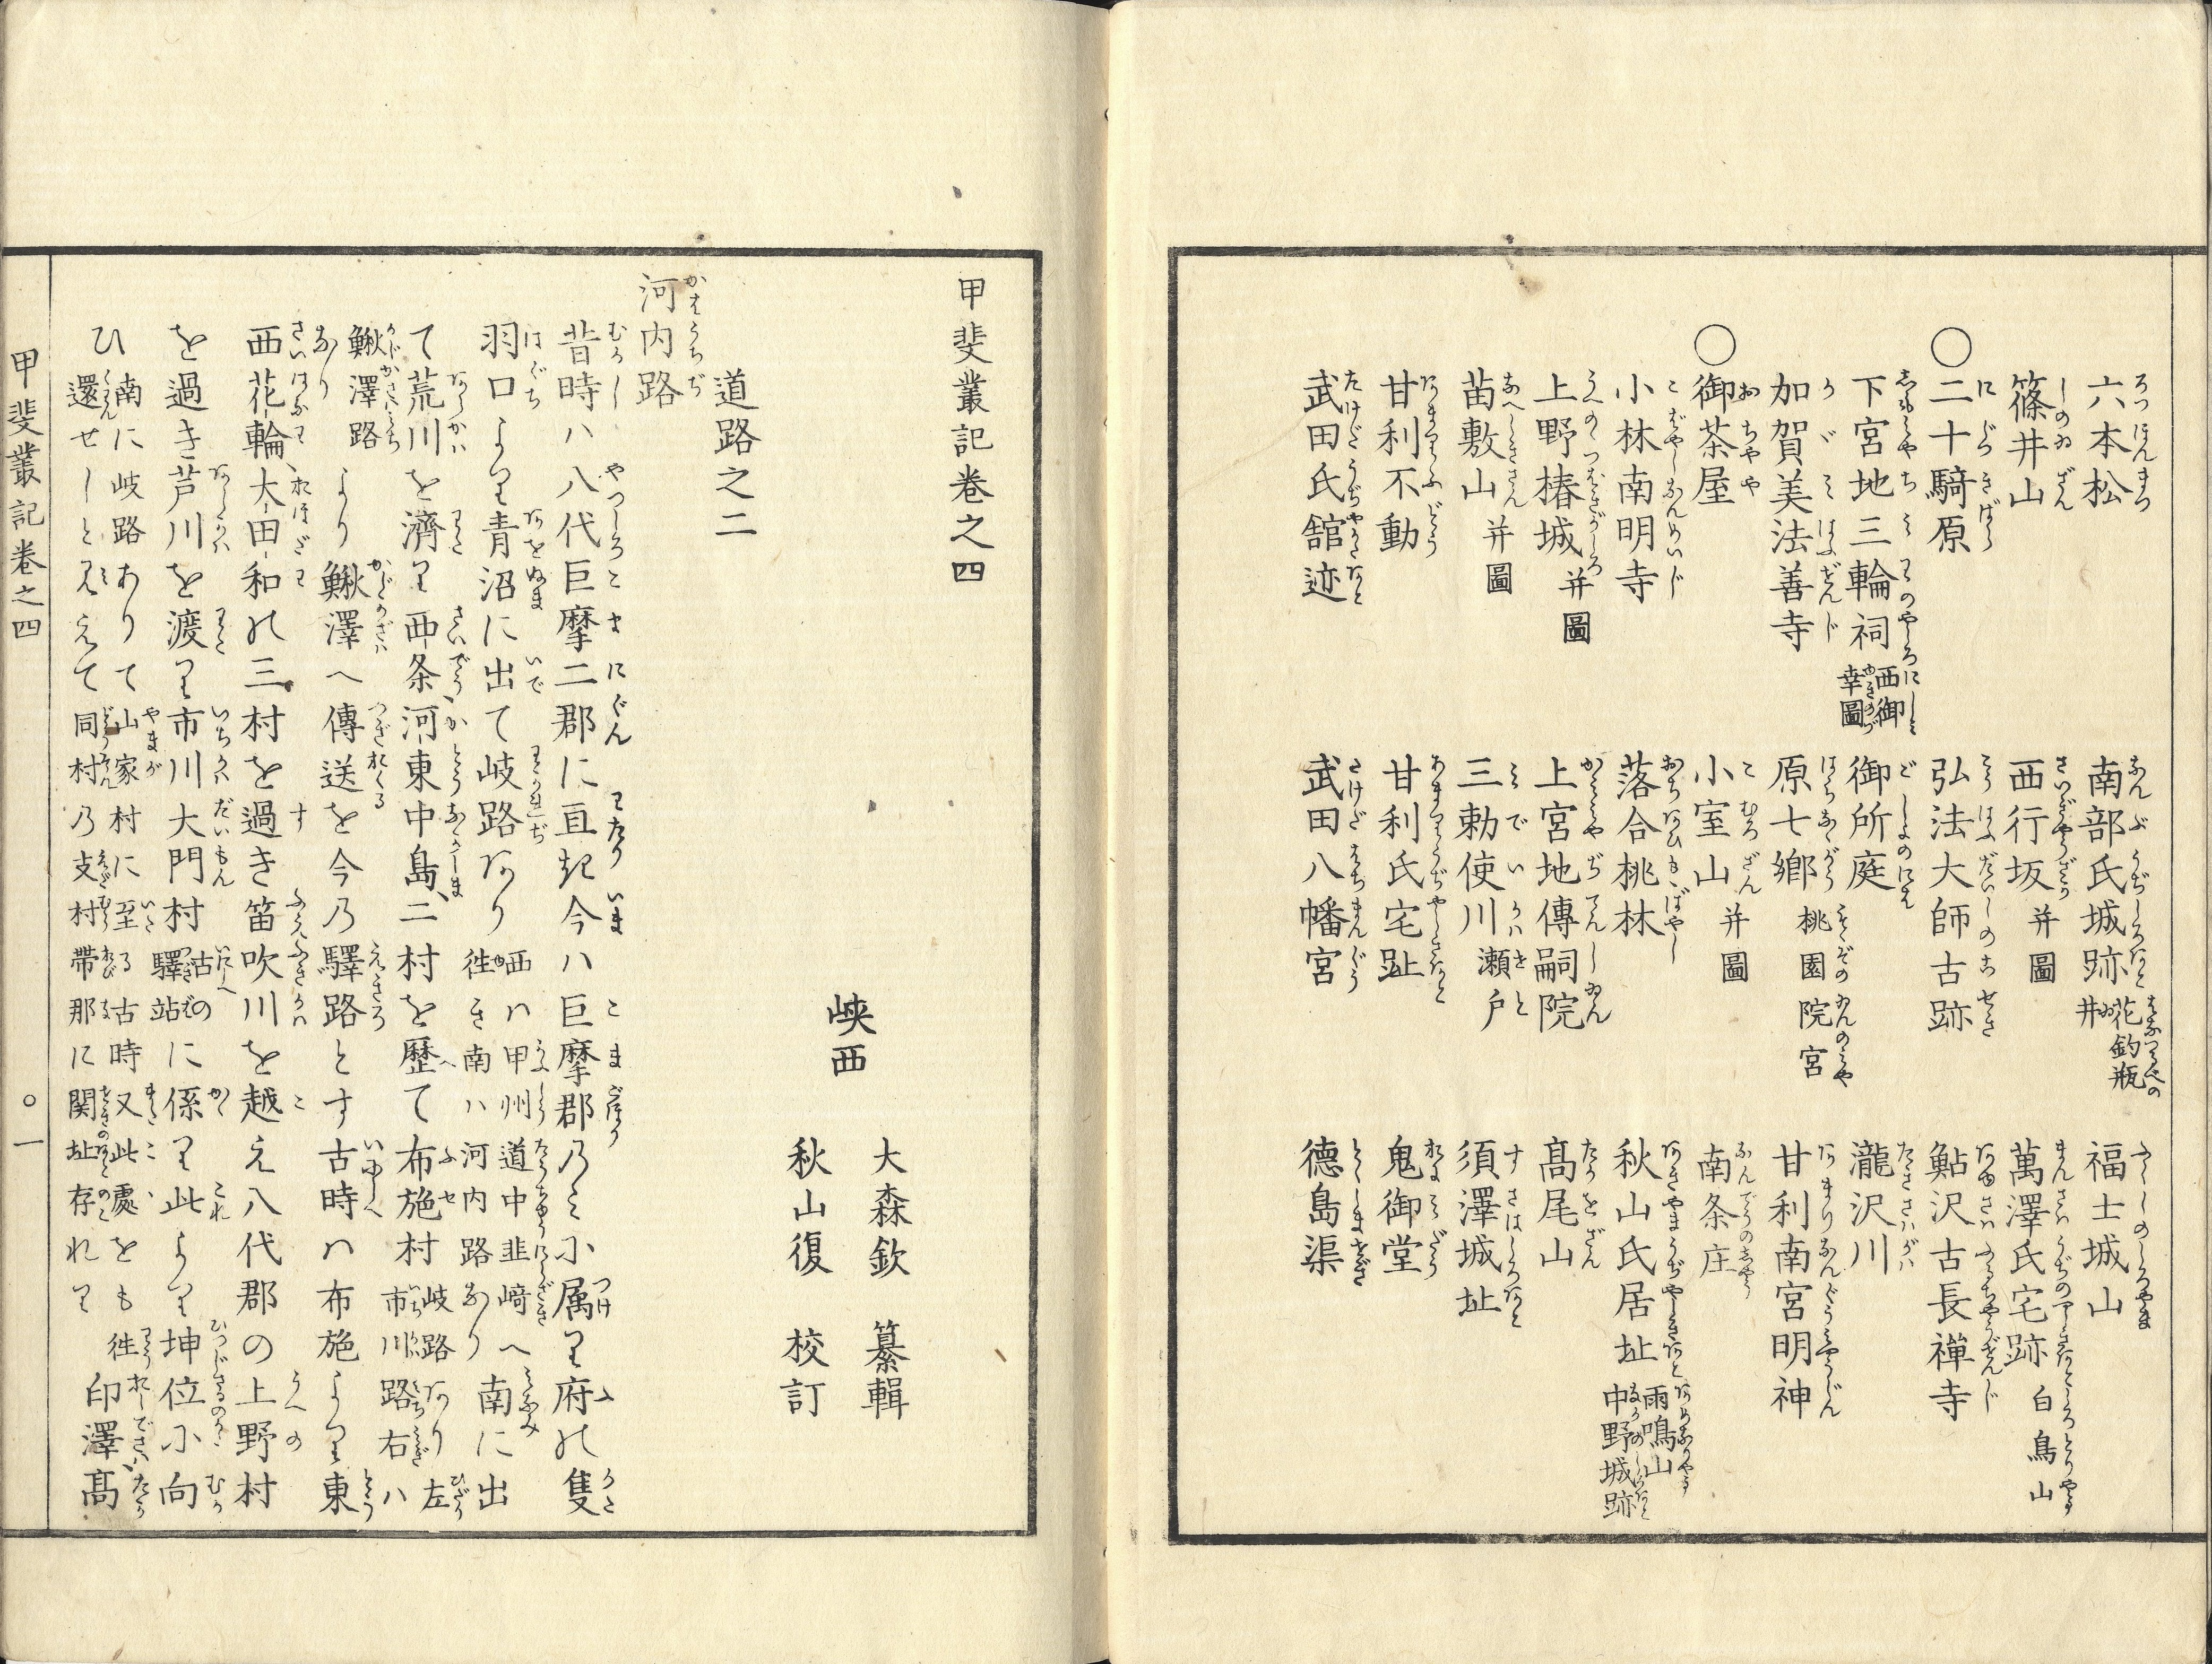 六本松 南部氏城跡 花釣瓶井 福士城山
篠井山 西行坂并圖 萬澤氏宅跡 白鳥山
○二十騎原 弘法大師古跡 鮎沢古長禅寺
下宮地三輪祠 西御幸圖 御所庭 瀧沢川
加賀美法善寺 原七郷 桃園院宮 甘利南宮明神
○御茶屋 小室山并圖 南条庄
小林南明寺 落合桃林 秋山氏居址 雨鳴山 中野城跡
上野椿城并圖 上宮地傳嗣院 髙尾山
苗敷山并圖 三勅使川 瀬戸 須澤城址
甘利不動 甘利氏宅趾 鬼御堂
武田氏舘迹 武田八幡宮 德島渠
甲斐叢記巻之四
大森欽 纂輯
峽西
秋山復 校訂
道路之二
河内路
昔時ハ八代巨摩二郡に亘れ起今ハ巨摩郡乃ミ小属り府の隻
羽口より青沼に出て岐路あり 西ハ甲州道中韮﨑へ徃き南ハ河内路あり 南に出
て荒川を濟り西条、河東中島、二村を歴て布施村 岐路あり左市川路右ハ
鰍澤路あり より鰍澤へ傳送を今乃驛路とす古時ハ布施より東
西花輪、大田和の三村を過き笛吹川を越え八代郡の上野村
を過き芦川を渡り市川大門村 古の驛站 に係り此より坤位小向
ひ 南に岐路ありて山家村に至る古時又此處をも徃還せしと見えて同村乃支村帯那に関址存れり 印澤、髙
甲斐叢記巻之四 ○一